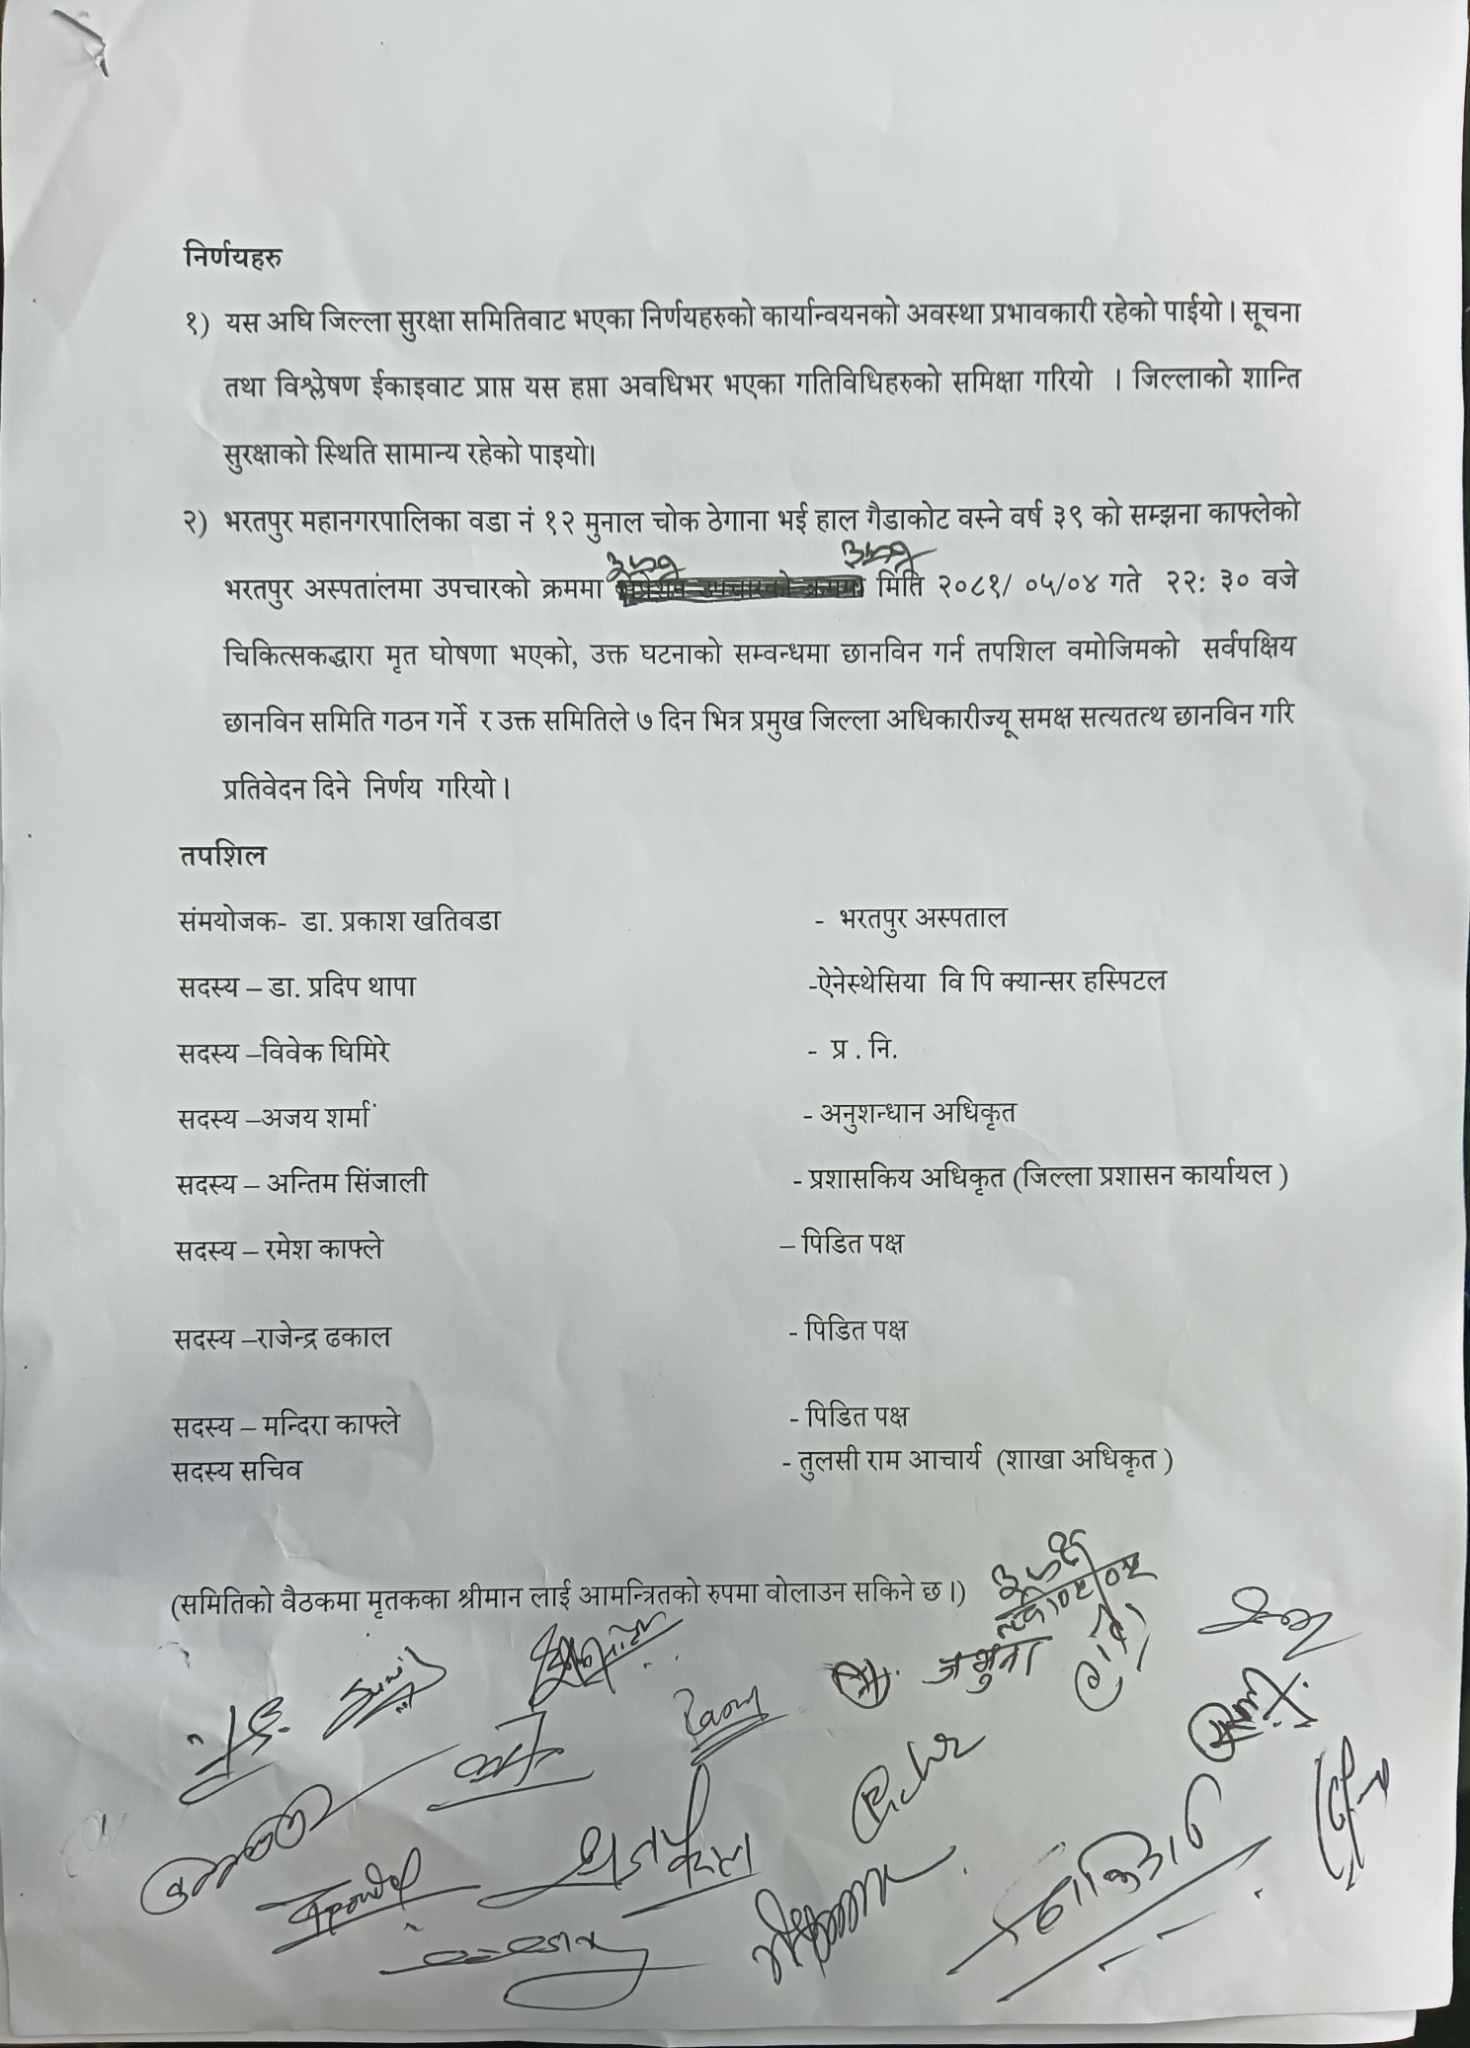 निर्णयहरु
१) यस अघि जिल्ला सुरक्षा समितिवाट भएका निर्णयहरुको कार्यान्वयनको अवस्था प्रभावकारी रहेको पाईयो । सूचना
तथा विश्लेषण ईकाइवाट प्राप्त यस हप्ता अवधिभर भएका गतिविधिहरुको समिक्षा गरियो । जिल्लाको शान्ति
सुरक्षाको स्थिति सामान्य रहेको पाइयो।
२) भरतपुर महानगरपालिका वडा नं १२ मुनाल चोक ठेगाना भई हाल गैडाकोट वस्ने वर्ष ३९ को सम्झना काफ्लेको
भरतपुर अस्पतांलमा उपचारको क्रममा मिति २०८१/ ०५/०४ गते २२: ३० वजे
चिकित्सकद्धारा मृत घोषणा भएको, उक्त घटनाको सम्वन्धमा छानविन गर्न तपशिल वमोजिमको सर्वपक्षिय
छानविन समिति गठन गर्ने र उक्त समितिले ७ दिन भित्र प्रमुख जिल्ला अधिकारीज्यू समक्ष सत्यतत्थ छानविन गरि
प्रतिवेदन दिने निर्णय गरियो ।
तपशिल
संमयोजक- डा. प्रकाश खतिवडा - भरतपुर अस्पताल
सदस्य – डा. प्रदिप थापा -ऐनेस्थेसिया वि पि क्यान्सर हस्पिटल
सदस्य –विवेक घिमिरे - प्र . नि.
सदस्य –अजय शर्मा - अनुशन्धान अधिकृत
सदस्य – अन्तिम सिंजाली - प्रशासकिय अधिकृत (जिल्ला प्रशासन कार्यायल )
सदस्य – रमेश काफ्ले – पिडित पक्ष
सदस्य –राजेन्द्र ढकाल - पिडित पक्ष
सदस्य – मन्दिरा काफ्ले - पिडित पक्ष
सदस्य सचिव - तुलसी राम आचार्य (शाखा अधिकृत )
(समितिको वैठकमा मृतकका श्रीमान लाई आमन्त्रितको रुपमा वोलाउन सकिने छ ।)
जमुना